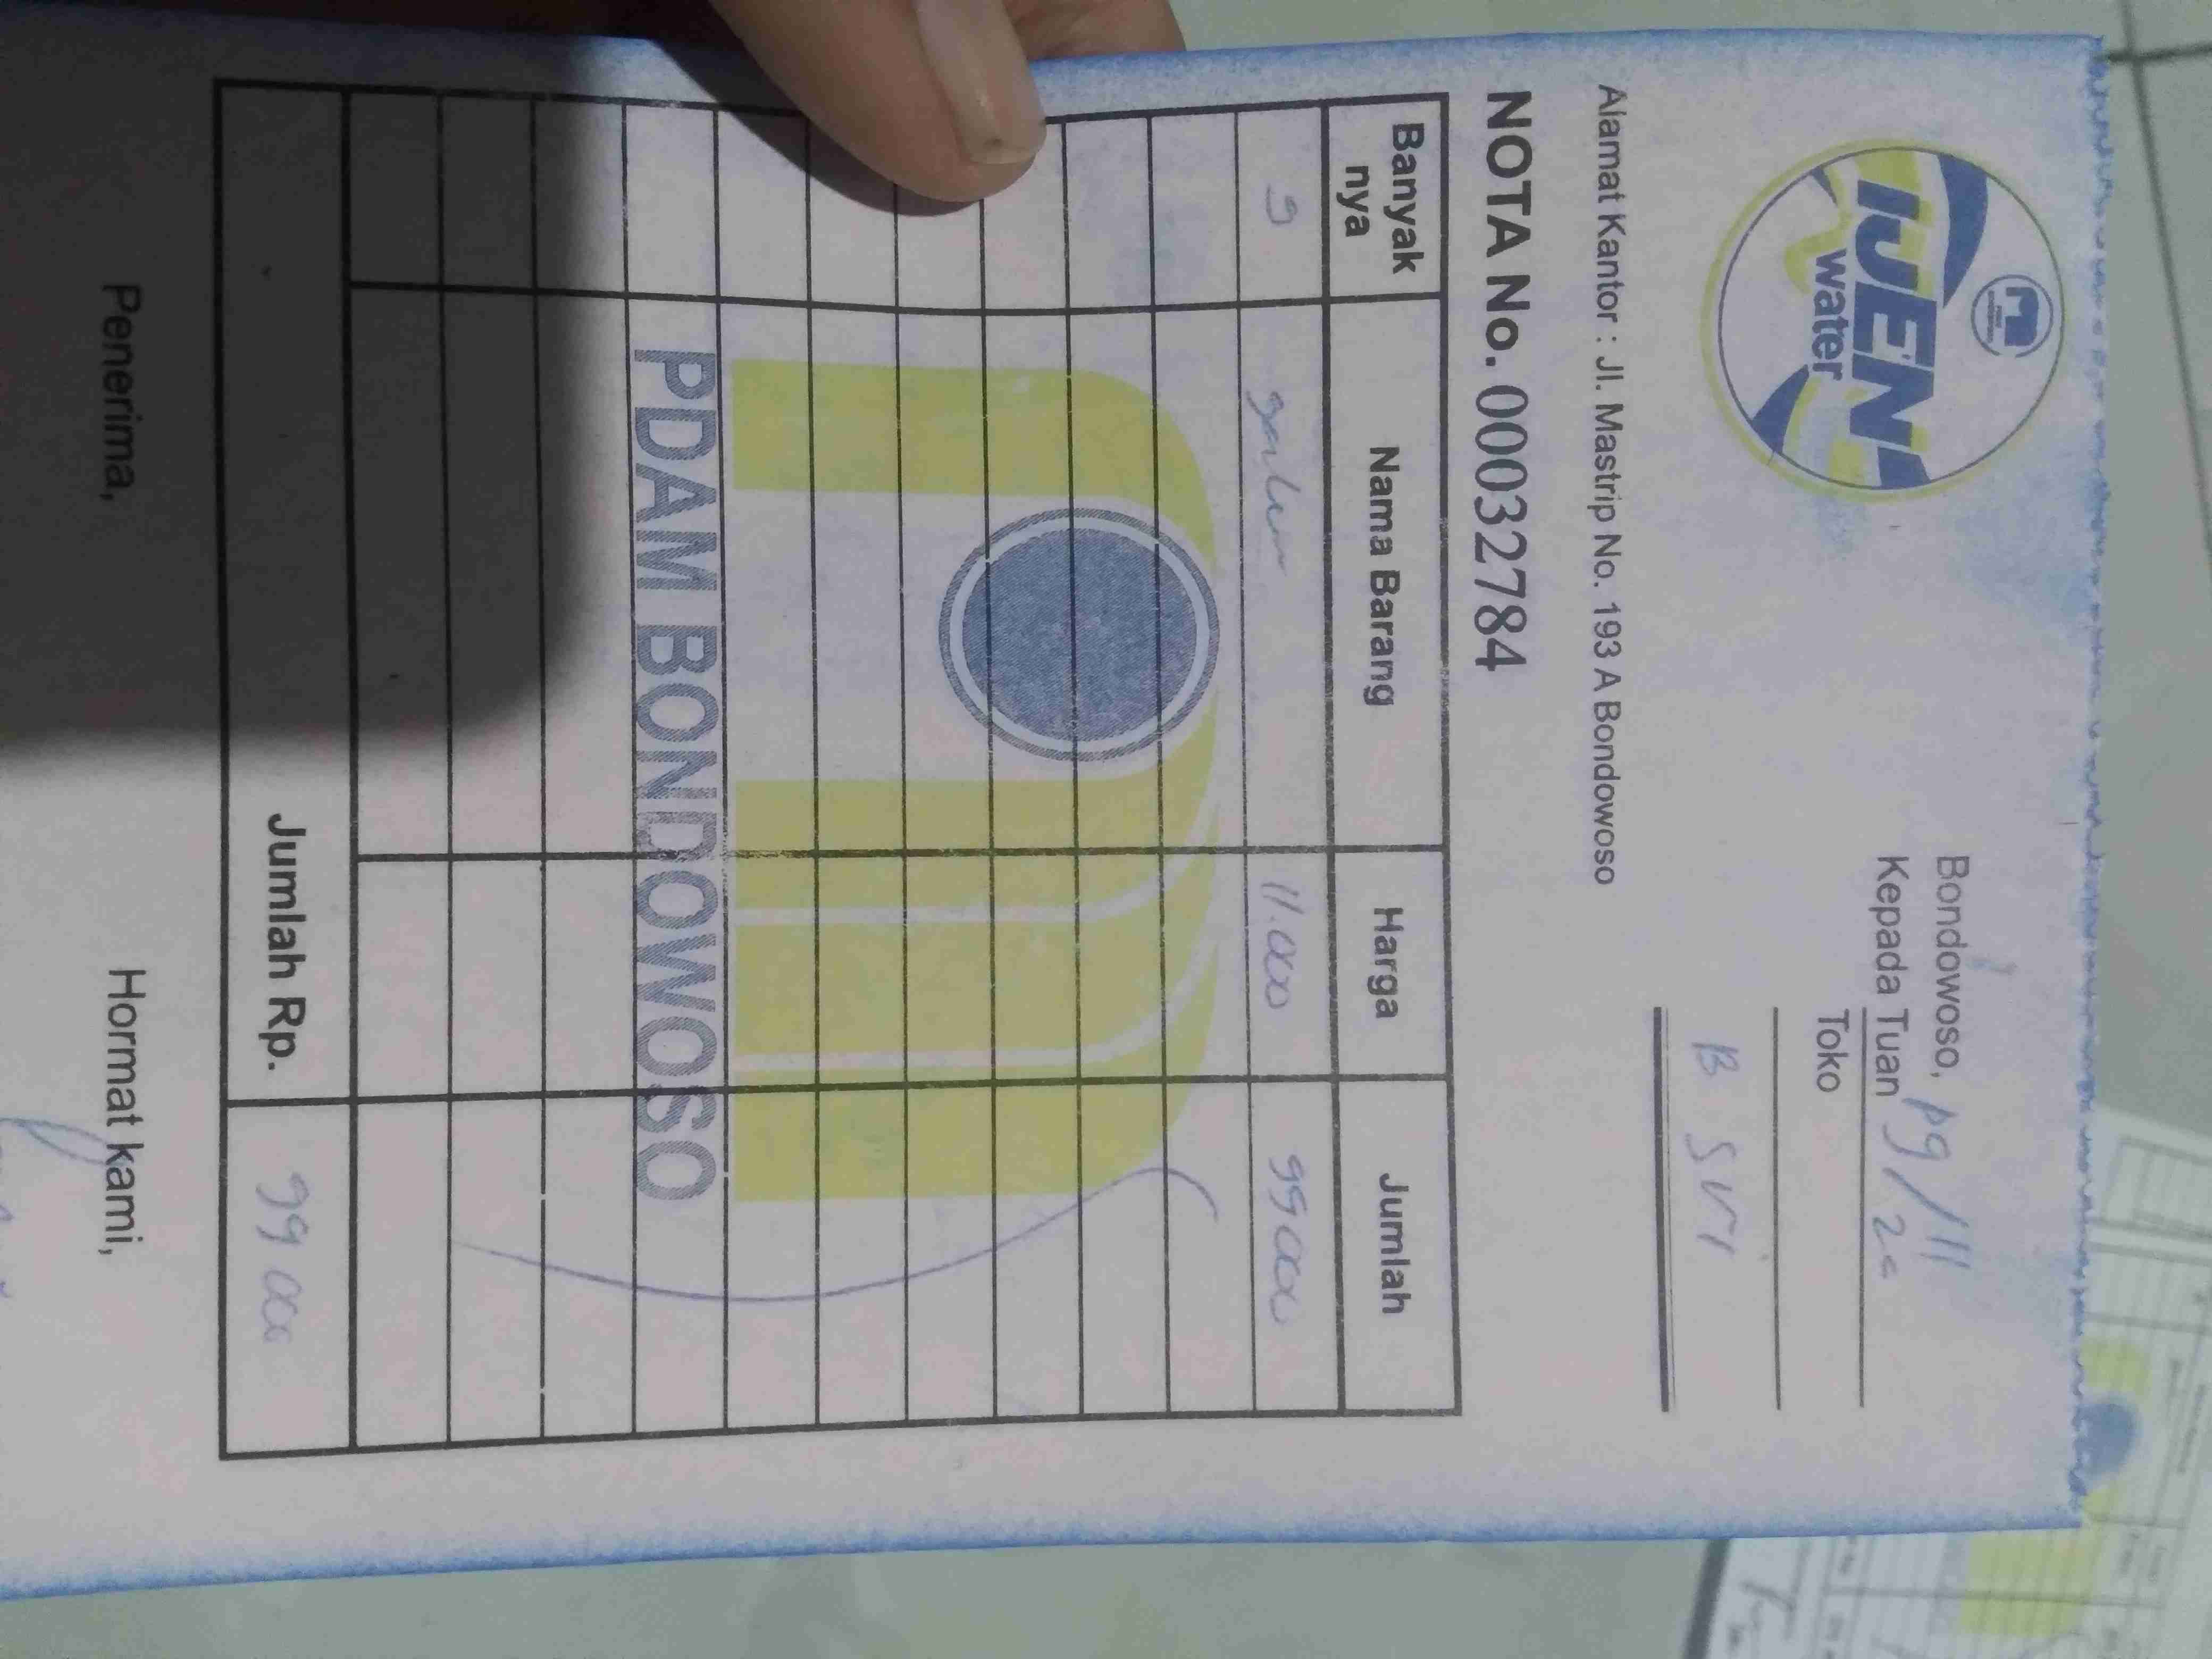 IJEN
water
Bondowoso,
Kepada Tuan
Toko
B Sri
Alamat Kantor : Jl. Mastrip No. 193 A Bondowoso
NOTA No. 00032784
Banyak nya Nama Barang Harga Jumlah
9 galon 11.000 99000
PDAM BONDOWOSO
Jumlah Rp. 99 000
Penerima, Hormat kami,